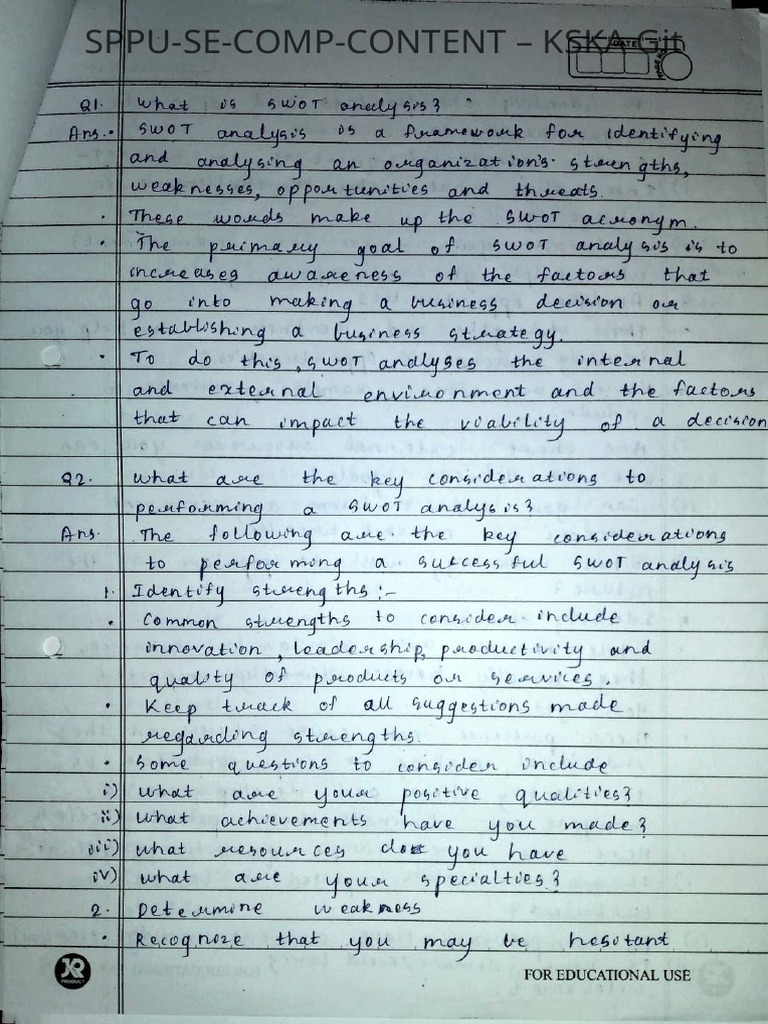 SPPU-SE-COMP-CONTENT – KSKA Git
DATE
Q1. What is SWOT analysis?
Ans. • SWOT analysis is a framework for identifying
and analysing an organization's strengths,
weaknesses, opportunities and threats.
• These words make up the SWOT acronym.
• The primary goal of SWOT analysis is to
increases awareness of the factors that
go into making a business decision or
establishing a business strategy.
• To do this, SWOT analyses the internal
and external environment and the factors
that can impact the viability of a decision
Q2. What are the key considerations to
performing a SWOT analysis?
Ans. The following are the key considerations
to performing a successful SWOT analysis
1. Identify strengths :-
• Common strengths to consider include
innovation, leadership, productivity and
quality of products or services.
• Keep track of all suggestions made
regarding strengths.
• Some questions to consider include
i) What are your positive qualities?
ii) What achievements have you made?
iii) What resources do you have
iv) What are your specialties?
2. Determine weakness
• Recognize that you may be hesitant
JQR PRODUCT
FOR EDUCATIONAL USE